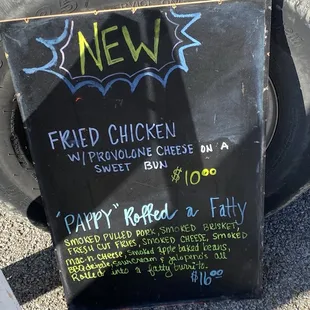 NEW
FRIED CHICKEN
W/ PROVOLONE CHEESE ON A
SWEET BUN
$10.00
"PAPPY" Rolled a Fatty
SMOKED PULLED PORK, SMOKED BRISKET,
FRESH CUT FRIES, SMOKED CHEESE, SMOKED
mac-n-cheese, Smoked apple baked beans,
BBQ drizzle, Sour cream & jalapenos all
Rolled into a fatty burrito.
$16.00